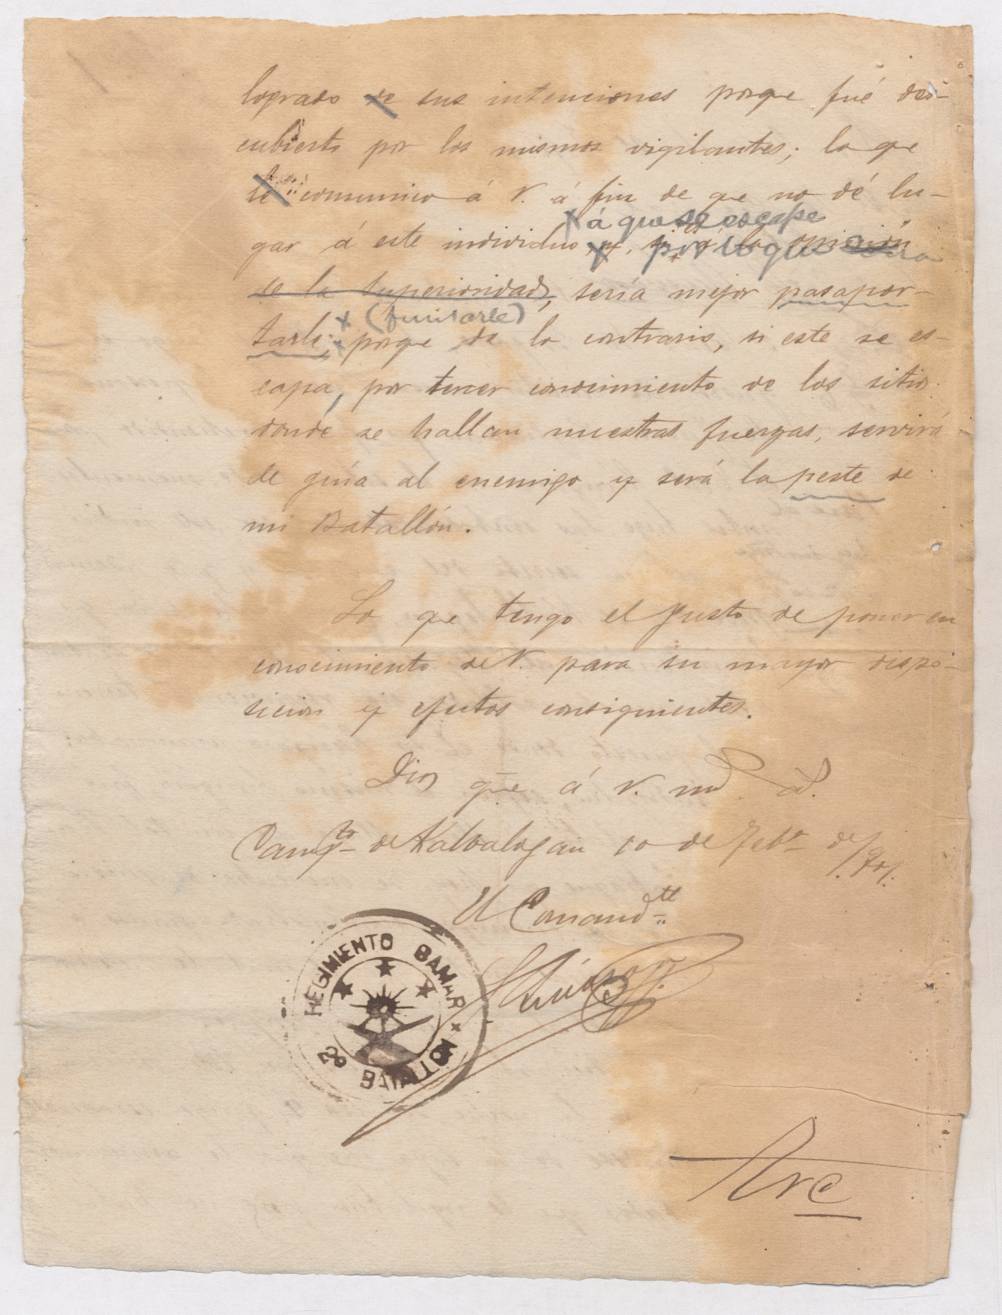 logrado de sus intenciones porque fué des-
cubierto por los mismos vigilantes; lo que
le comunico á V. á fin de que no dé lu-
á que se escape
gar á este individuo y,
por lo que
de la Superioridad, sería mejor pasapor-
(fusilarle)
tarle; porque de lo contrario, si este se es-
capa, por tercer conocimiento de los sitios
donde se hallan nuestras fuerzas, servirá
de guía al enemigo y será la peste de
mi Batallón.
Lo que tengo el gusto de poner en
conocimiento de V. para su mayor dispo-
sicion y efectos consiguientes.
Dios gue á V. md. ad.
Campto de Kalbalogan 10 de Febo de /901.
El Comandte
REGIMIENTO BAMAR
2º BATALLON